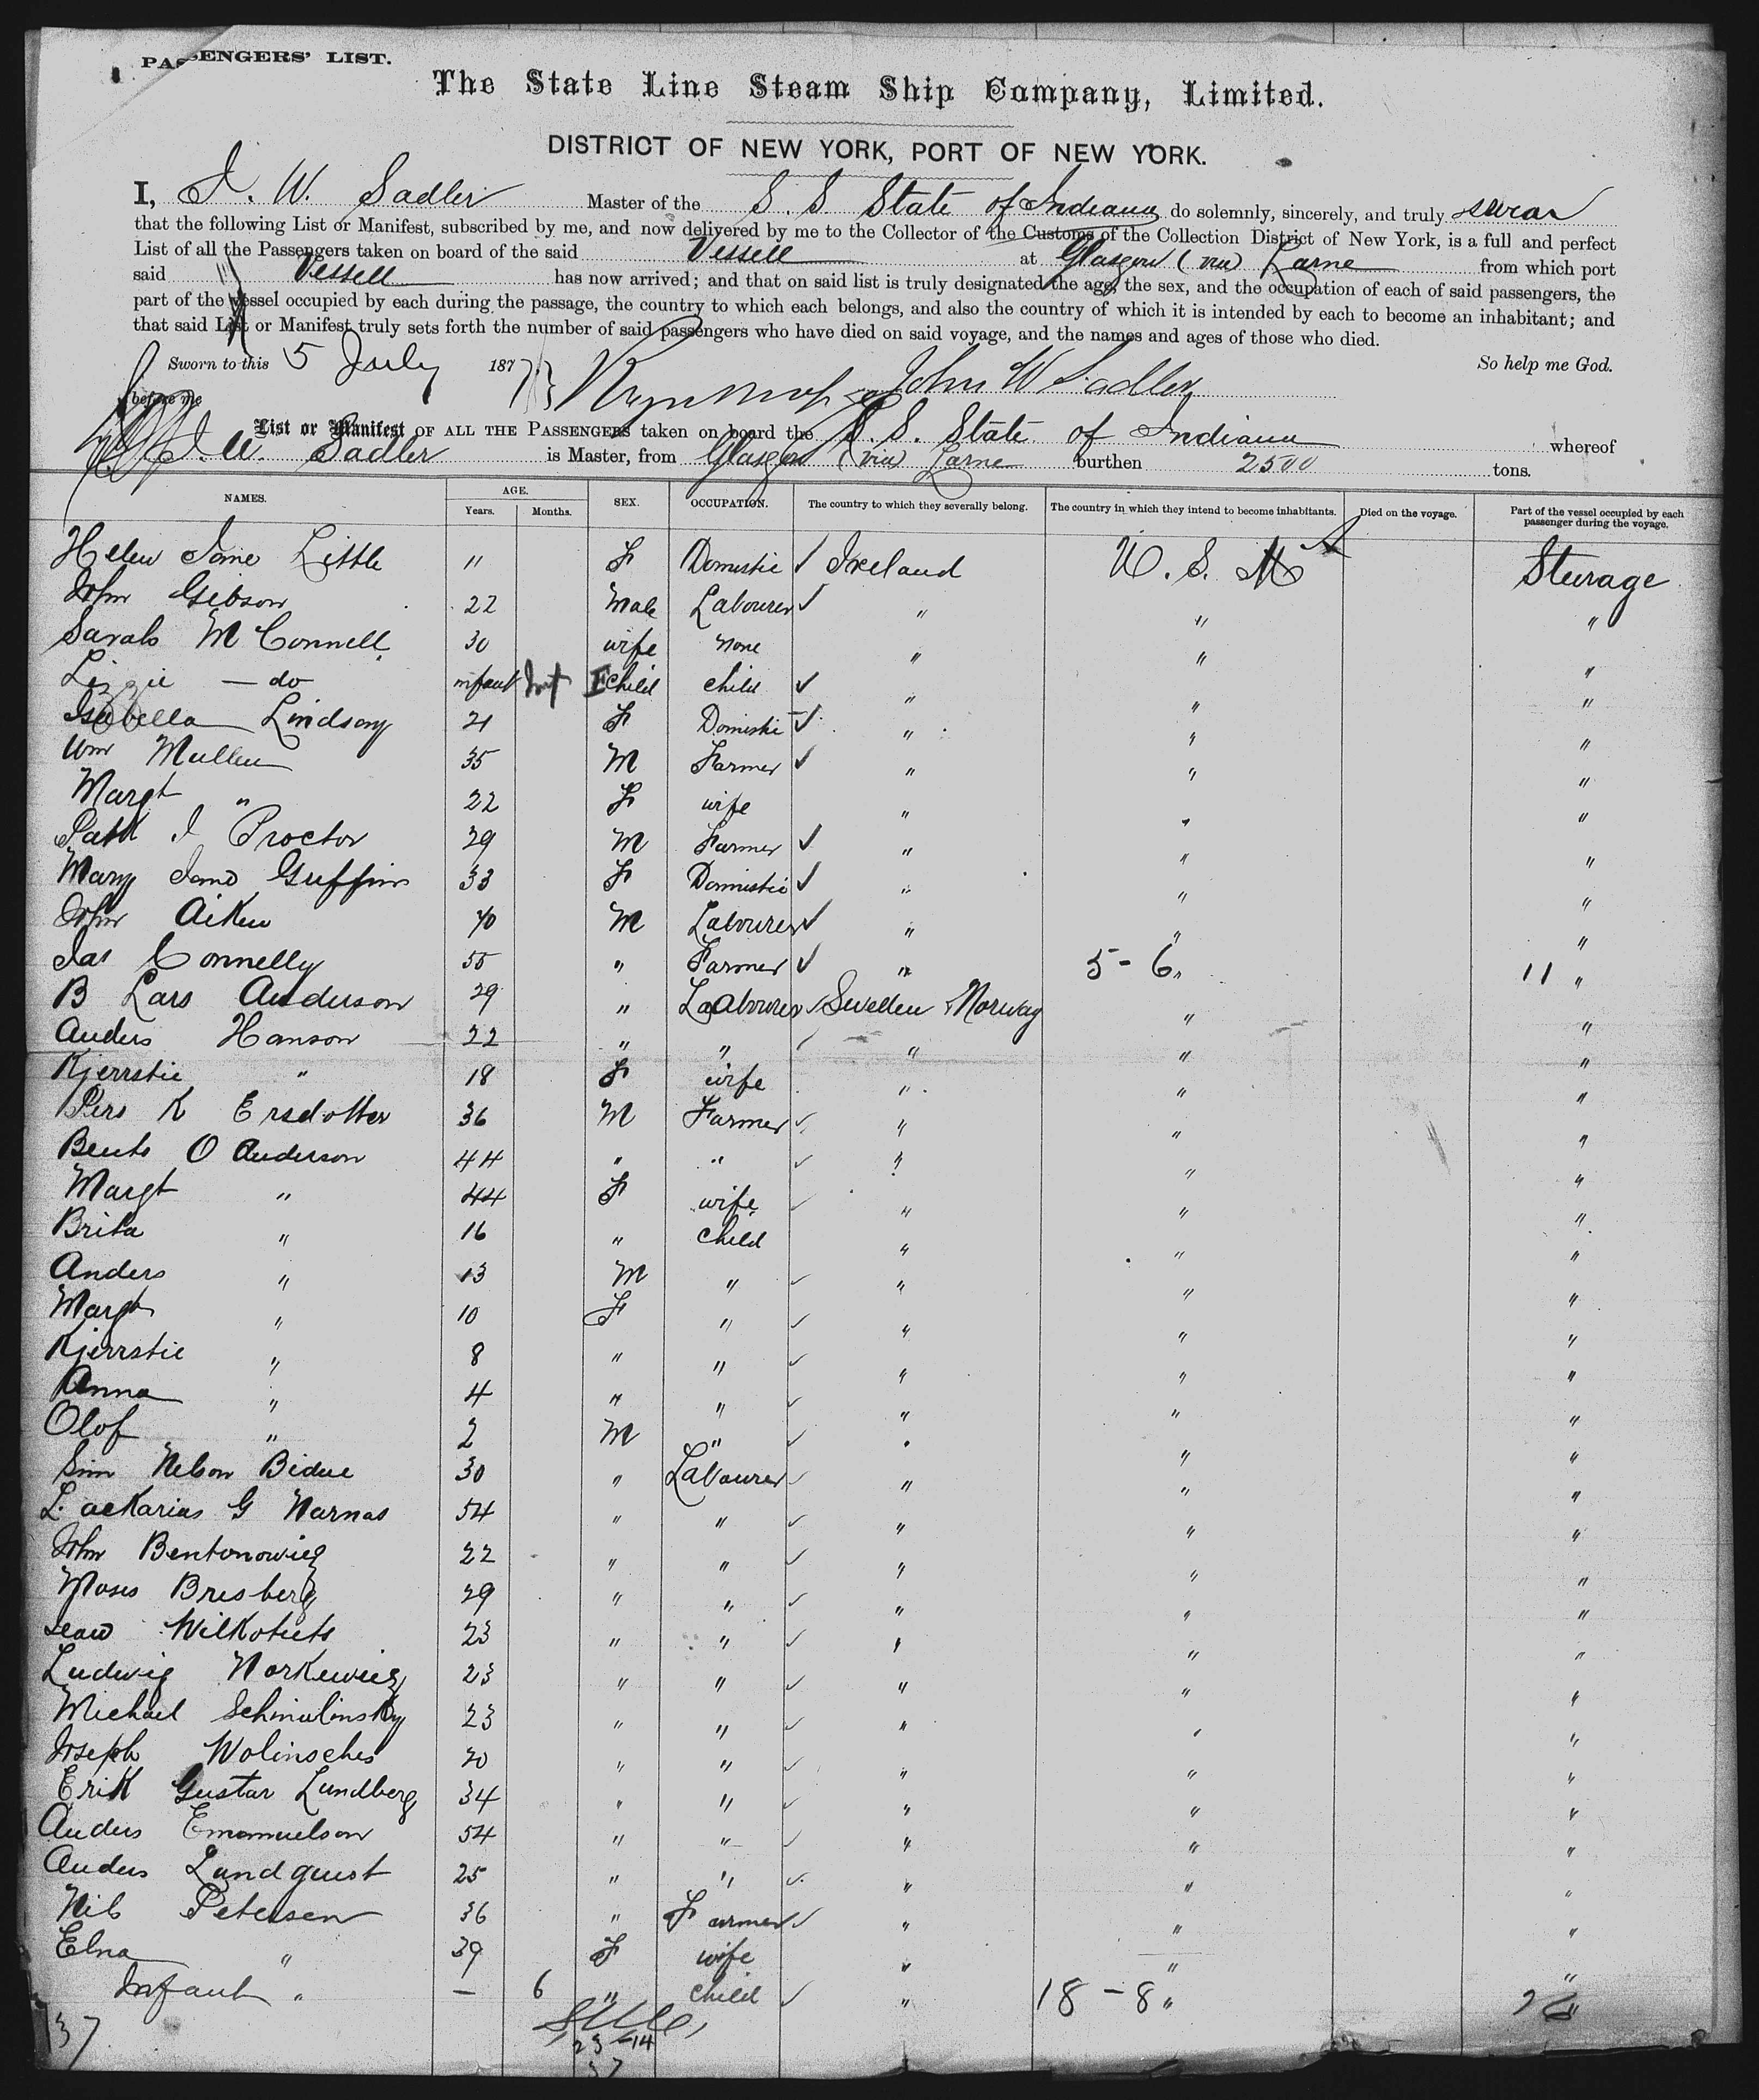 PASSENGERS' LIST.
The State Line Steam Ship Company, Limited.
DISTRICT OF NEW YORK, PORT OF NEW YORK.
I, J. W. Sadler Master of the S. S State of Indiana do solemnly, sincerely, and truly swear
that the following List or Manifest, subscribed by me, and now delivered by me to the Collector of the Customs of the Collection District of New York, is a full and perfect
List of all the Passengers taken on board of the said Vessell at Glasgow (via) Larne from which port
said Vessell has now arrived; and that on said list is truly designated the age, the sex, and the occupation of each of said passengers, the
part of the vessel occupied by each during the passage, the country to which each belongs, and also the country of which it is intended by each to become an inhabitant; and
that said List or Manifest truly sets forth the number of said passengers who have died on said voyage, and the names and ages of those who died.
Sworn to this 5 July 1877 John W Sadler So help me God.
before me
List or Manifest OF ALL THE PASSENGERS taken on board the S. S. State of Indiana whereof
J. W. Sadler is Master, from Glasgow (via) Larne burthen 2500 tons.
NAMES. AGE. Years. Months. SEX. OCCUPATION. The country to which they severally belong. The country in which they intend to become inhabitants. Died on the voyage. Part of the vessel occupied by each passenger during the voyage.
Helen Jane Little 11 F Domestic ✓ Ireland U. S. A Steerage
John Gibson 22 Male Labourer ✓ " " "
Sarah McConnell 30 wife none " " "
Lizzie — do infant Inf F child child ✓ " " "
Isabella Lindsay 21 F Domestic ✓ " " "
Wm Mullen 35 M Farmer ✓ " " "
Margt " 22 F wife " " "
Patk J Proctor 29 M Farmer ✓ " " "
Mary Jane Guffin 33 F Domistic ✓ " " "
John Aiken 40 M Labourer ✓ " " "
Jas Connelly 55 " Farmer ✓ " 5 - 6 " 11 "
B Lars Anderson 29 " Labourer ✓ Sweden & Norway " "
Anders Hanson 22 " " ✓ " " "
Kjerrstie " 18 F wife " " "
Pers K Ersdotter 36 M Farmer ✓ " " "
Bents O Anderson 44 " " ✓ " " "
Margt " 44 F wife ✓ " " "
Brita " 16 " child " " "
Anders " 13 M " ✓ " " "
Margt " 10 F " ✓ " " "
Kjerrstie " 8 " " ✓ " " "
Anna " 4 " " ✓ " " "
Olof " 2 M " ✓ " " "
Nelson Bidue 30 " Labourer ✓ " " "
G Narnas 54 " " ✓ " " "
John Bentonowicz 22 " " ✓ " " "
Moses Bresberg 29 " " ✓ " " "
Wilkotuts 23 " " ✓ " " "
Ludwig Norkewicz 23 " " ✓ " " "
Michael Schimilinsky 23 " " ✓ " " "
Joseph Wolinsches 20 " " ✓ " " "
Erik Gustav Lundberg 34 " " ✓ " " "
Anders Emanuelson 54 " " ✓ " " "
Anders Lundquist 25 " " ✓ " " "
Nils Petersen 36 " Farmer ✓ " " "
Elna " 39 F wife " " "
Infant " — 6 " child ✓ " 18 - 8 " 26 "
37
23-14
37